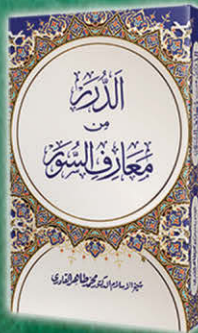 الدُّرَر
مِن
مَعَارِفِ السُّوَر
شیخ الاسلام الدکتور محمد طاهر القادري